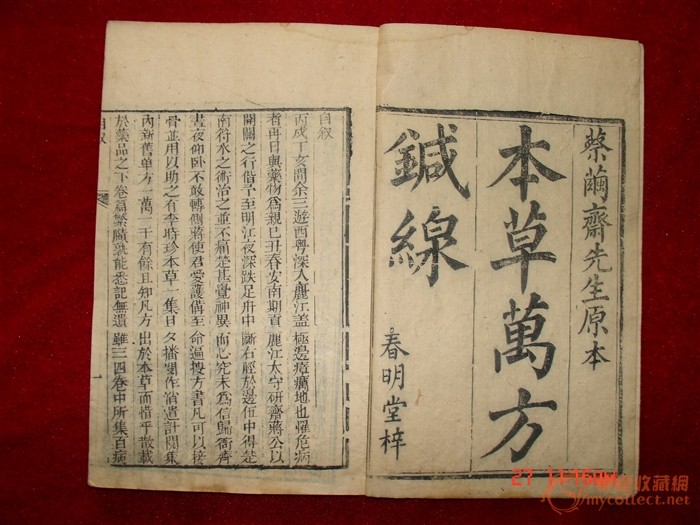 蔡繭齋先生原本
本草萬方
鍼線
春明堂梓
自叙
丙戌丁亥間余三遊西粵深入麗江蓋極邊瘴癘地也惟危病
者再日與藥物為親已丑春安南期貢麗江太守研齋蔣公以
開關之行偕予至明江夜深跌足舟中斷右脛於邊伍中得楚
南符水之術治之並不痛楚甚覺神異而心究未為信歸衙齊
晝夜仰卧不敢轉側蔣使君愛護備至命遍搜方書凡可以接
骨並用以助之有李時珍本草一集日夕播閱作消遣計閱集
內新舊单方一萬一千有餘且知凡方出於本草而惜乎散載
於藥品之下卷篇繁賾孰能悉記無遺雖三四卷中所集百病
自叙
一
27 1
收藏網
mycollect.net